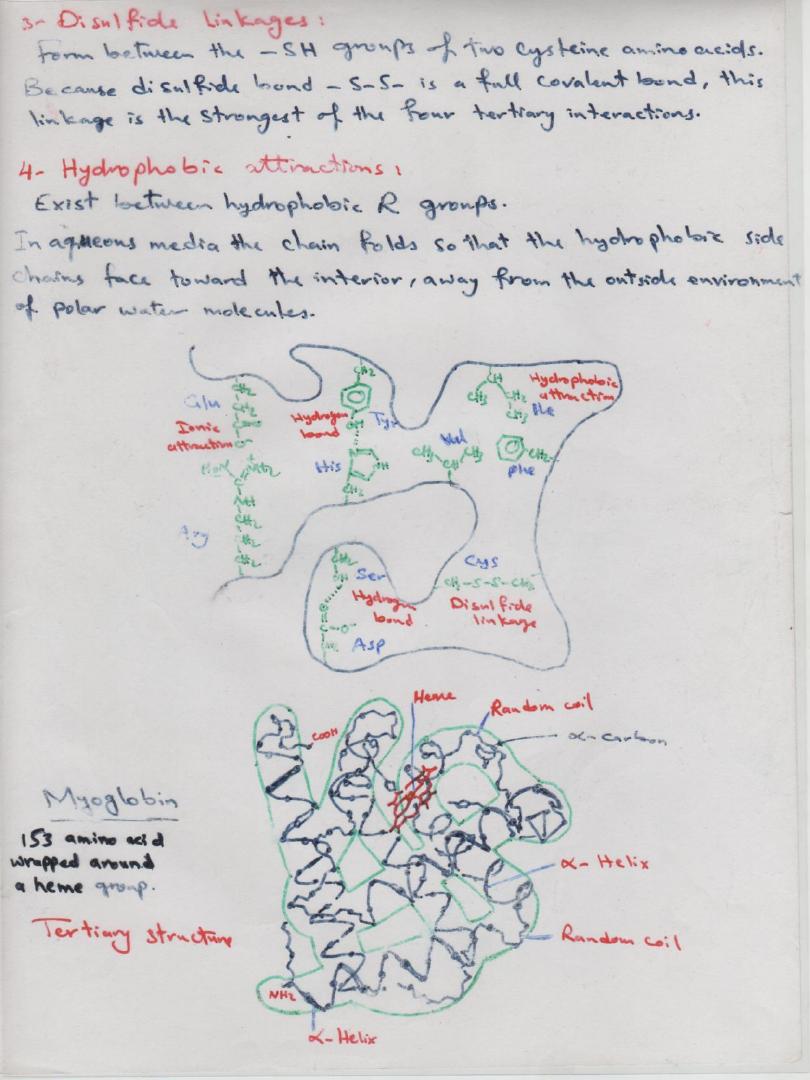 3- Disulfide Linkages:
Form between the -SH groups of two cysteine amino acids.
Because disulfide bond -S-S- is a full covalent bond, this
linkage is the strongest of the four tertiary interactions.
4- Hydrophobic attractions:
Exist between hydrophobic R groups.
In aqueous media the chain folds so that the hydrophobic side
chains face toward the interior, away from the outside environment
of polar water molecules.
CH2
CH
Hydrophobic
attraction
CH3
CH2
CH3
Ile
Glu
Ionic
attraction
Hydrogen
bond
OH
Tyr
Val
CH3
CH3
CH
CH2
Phe
NH2
His
CH2
Arg
CH2
CH2
CH2
OH
Ser
Hydrogen
bond
Asp
Cys
CH2-S-S-CH2
Disulfide
linkage
Heme
Random coil
COOH
α-carbon
Myoglobin
153 amino acid
wrapped around
a heme group.
α-Helix
Tertiary structure
Random coil
NH2
α-Helix